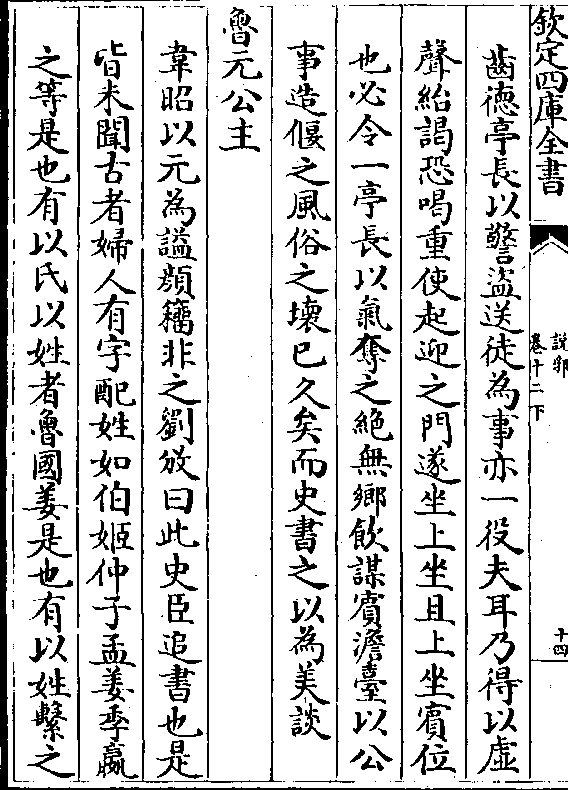 欽定四庫全書
說郛
卷十二下
十四
齒德亭長以警盗送徒為事亦一役夫耳乃得以虛
聲紿謁恐喝重使起迎之門遂坐上坐且上坐賓位
也必令一亭長以氣奪之絶無鄉飲謀賓澹臺以公
事造偃之風俗之壞已久矣而史書之以為美談
魯元公主
韋昭以元為謚顔籀非之劉攽曰此史臣追書也是
皆未聞古者婦人有字配姓如伯姬仲子孟姜季嬴
之等是也有以氏以姓者魯國姜是也有以姓繫之